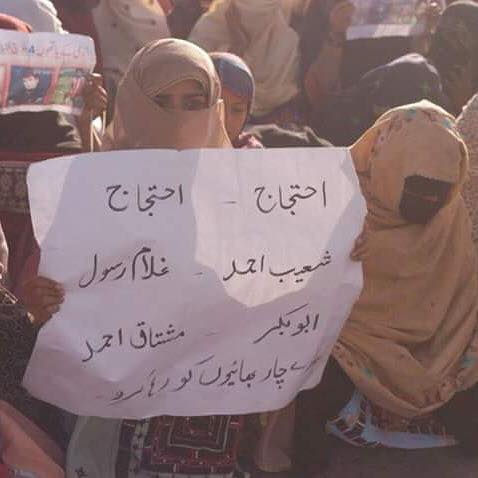 احتجاج - احتجاج
شعیب احمد - غلام رسول
ابوبکر - مشتاق احمد
چار بھائیوں کو رہا کرو